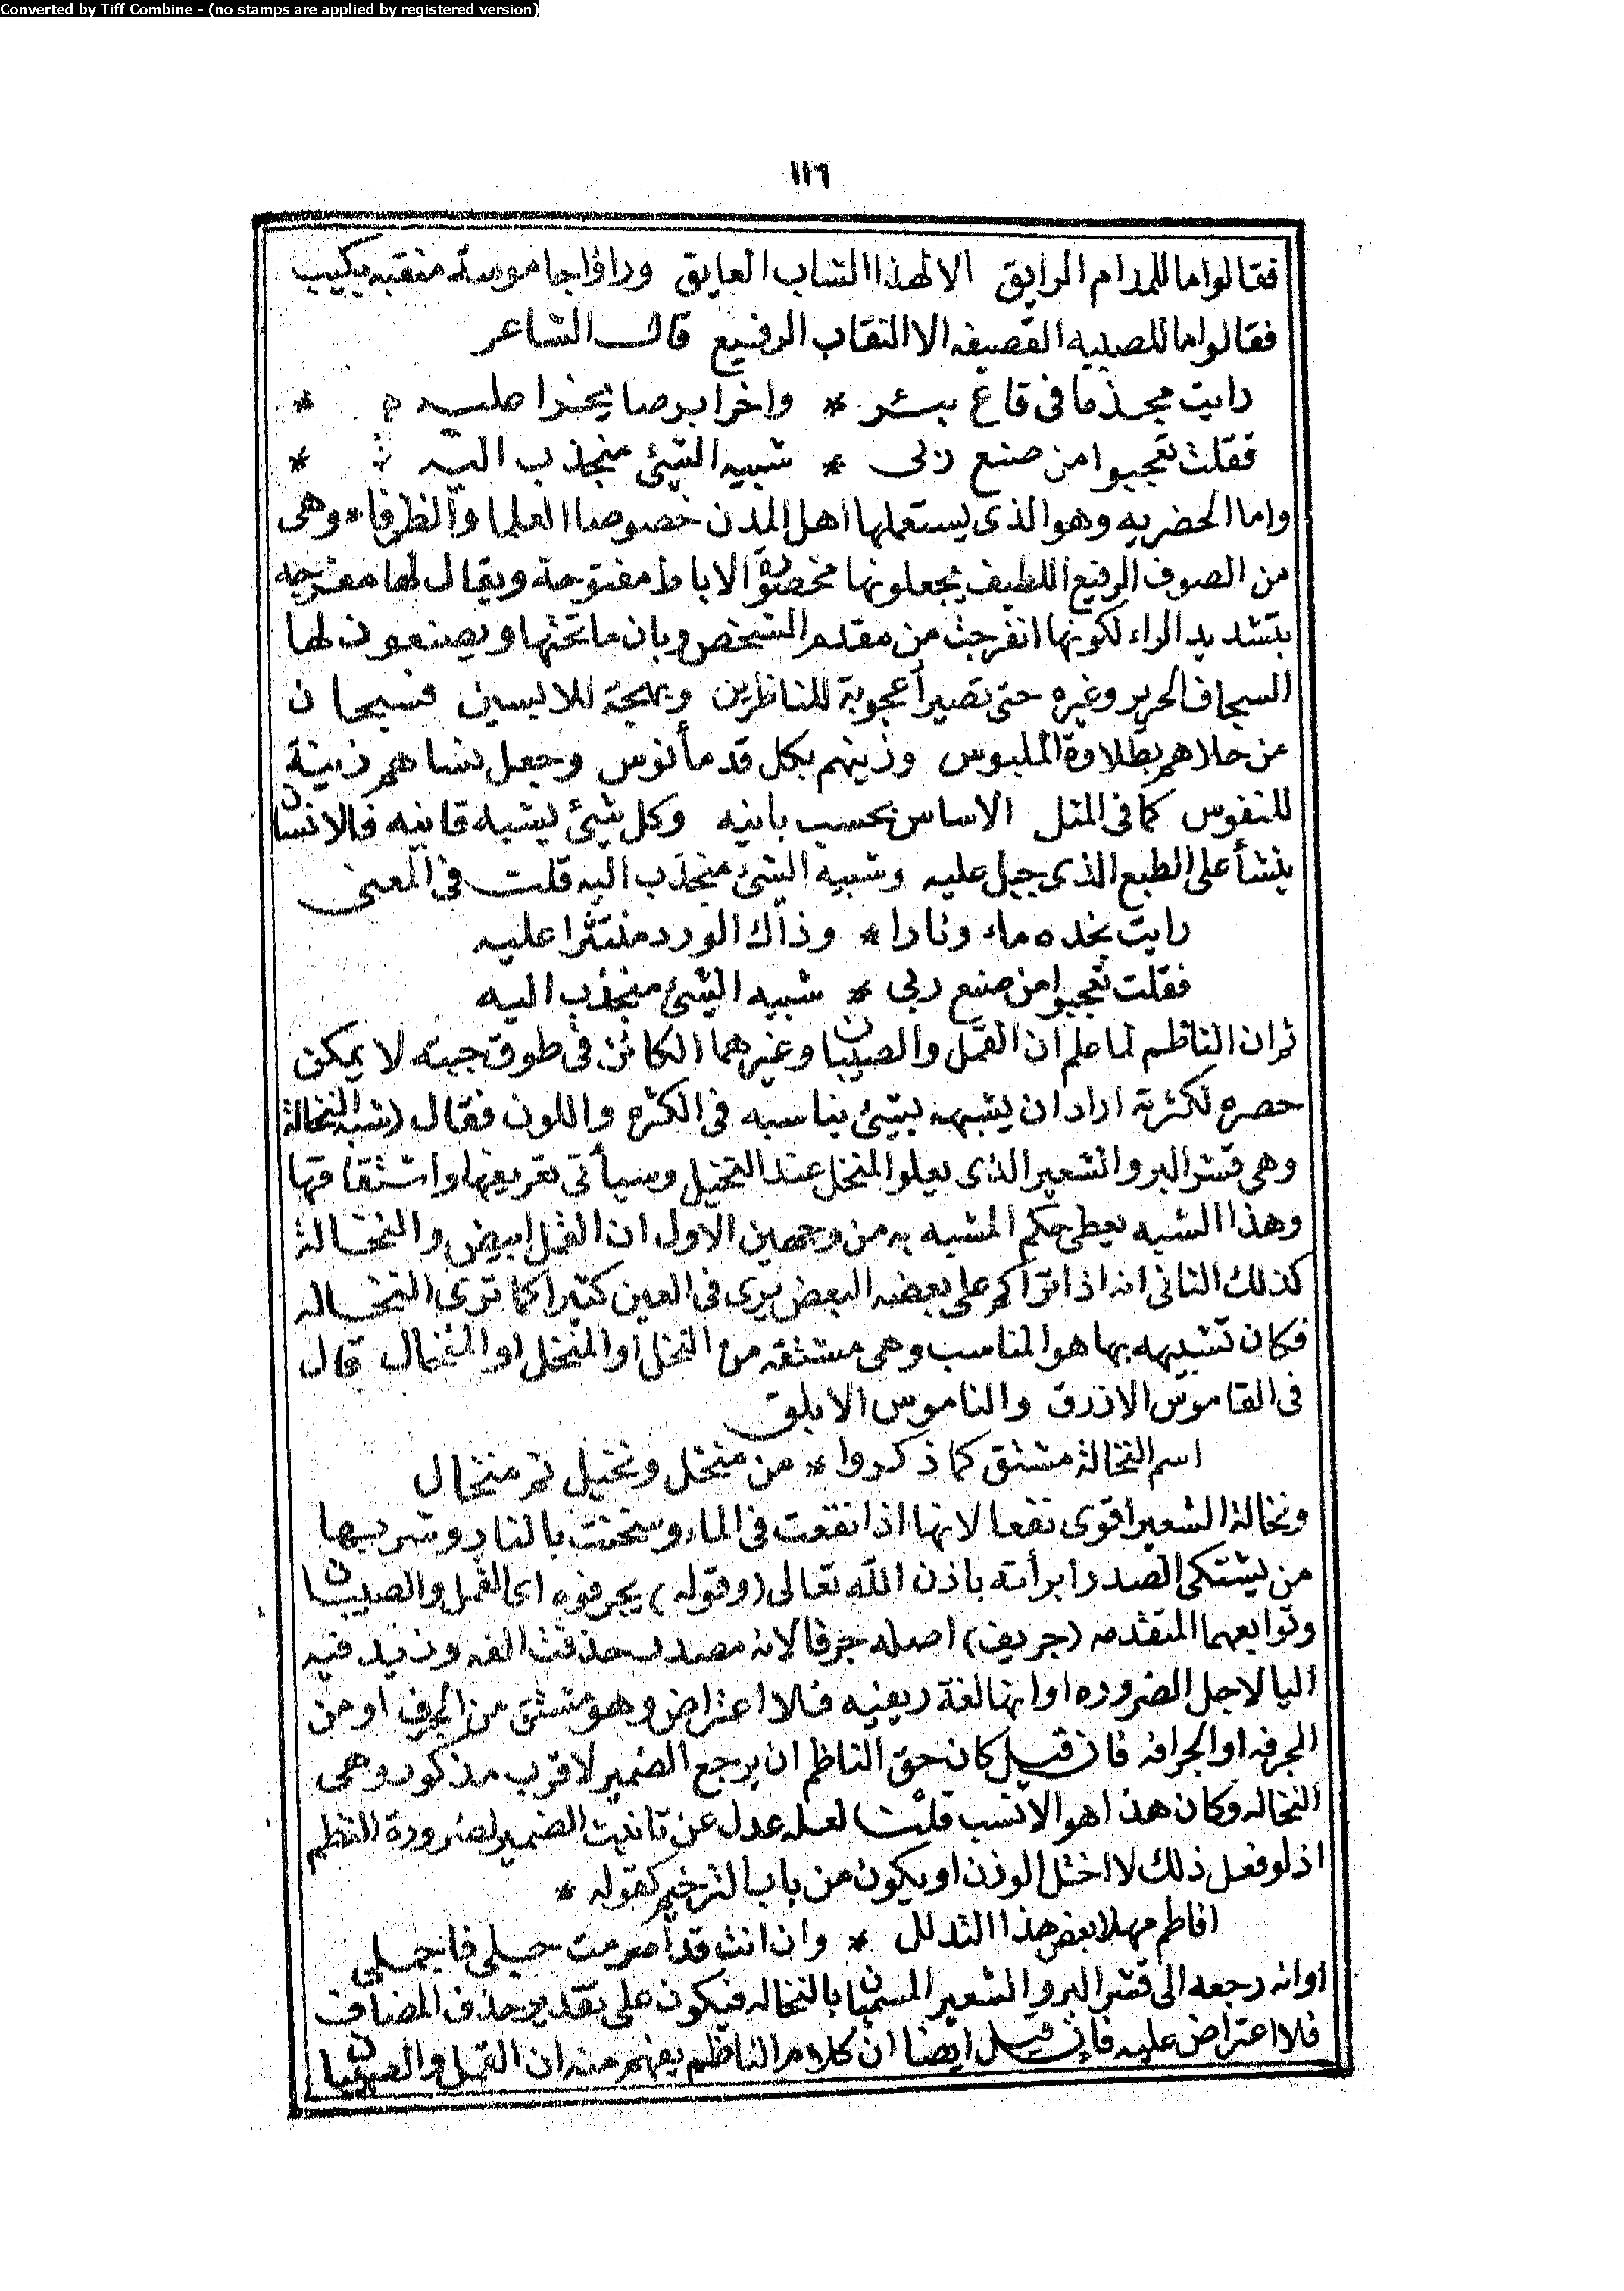 Converted by Tiff Combine - (no stamps are applied by registered version)
١١٦
فقالوا ما للمدام الرايق الا لهذا الشاب العايق وراوا جاموسة منقبه بكيب
فقالوا ما للصبيه القصيفه الا النقاب الرفيع قال الشاعر
رايت مجذما فى قاع بير * واخر ابرصا يخرا عليه *
فقلت تعجبوا من صنع ربى * شبيه الشئ منجذب اليه *
واما الحضريه وهو الذى يستعملها اهل المدن خصوصا العلما والظرفاء وهى
من الصوف الرفيع اللطيف يجعلونها مخصورة الاباط مفتوحة ويقال لها مفرجه
بتشديد الراء لكونها انفرجت من مقدم الشخص وبان ما تحتها ويصنعون لها
السجاف الحرير وغيره حتى تصير أعجوبة للناظرين وبهجة للابسين فسبحان
من حلاهم بطلاوة الملبوس وزينهم بكل قد مأنوس وجعل نساهم زينة
للنفوس كما فى المثل الاساس بحسب بانيه وكل شئ يشبه قانيه فالانسان
ينشأ على الطبع الذى جبل عليه وشبيه الشئ منجذب اليه قلت فى المعنى
رايت بخده ماء ونارا * وذاك الورد منتثرا عليه
فقلت تعجبوا من صنع ربى * شبيه الشئ منجذب اليه
ثم ان الناظم لما علم ان القمل والصيبان وغيرهما الكائن فى طوق جبته لا يمكن
حصره لكثرته اراد ان يشبهه بشئ يناسبه فى الكثره واللون فقال (شبه النخالة
وهى قشر البر والشعير الذى يعلو المنخل عند التنخيل وسيأتى تعريفها واشتقاقها
وهذا الشبه يعطى حكم المشبه به من وجهين الاول ان القمل ابيض والنخالة
كذلك الثانى انه اذا تراكم على بعضه البعض يرى فى العين كثيرا كما ترى النخاله
فكان تشبيهه بها هو المناسب وهى مشتقه من النخل او المنخل او المنخال قال
فى القاموس الازرق والناموس الابلق
اسم النخالة مشتق كما ذكروا * من منخل ونخيل ثم منخال
ونخالة الشعير اقوى نفعا لانها اذا نقعت فى الماء وسخنت بالنار وشربها
من يشتكى الصدر ابرأته باذن الله تعالى (وقوله) يجرفوه اى القمل والصيبان
وتوابعهما المتقدمه (جريف) اصله جرفا لانه مصدر حذفت الفه وزيد فيه
اليا لاجل الضروره او انها لغة ريفيه فلا اعتراض وهو مشتق من الجرف او من
المجرفه او الجرافه فان قيل كان حق الناظم ان يرجع الضمير لاقرب مذكور وهى
النخاله وكان هذا هو الانسب قلت لعله عدل عن تانيث الضمير لضرورة النظم
اذ لو فعل ذلك لا اختل الوزن او يكون من باب الترخيم كقوله *
افاطم مهلا بعض هذا التدلل * وان انت قد اصرمت حبلى فاجملى
او انه رجعه الى قشر البر والشعير المسميان بالنخاله فيكون على تقدير حذف المضاف
فلا اعتراض عليه فان قيل ايضا ان كلام الناظم يفهم منه ان القمل والصيبان